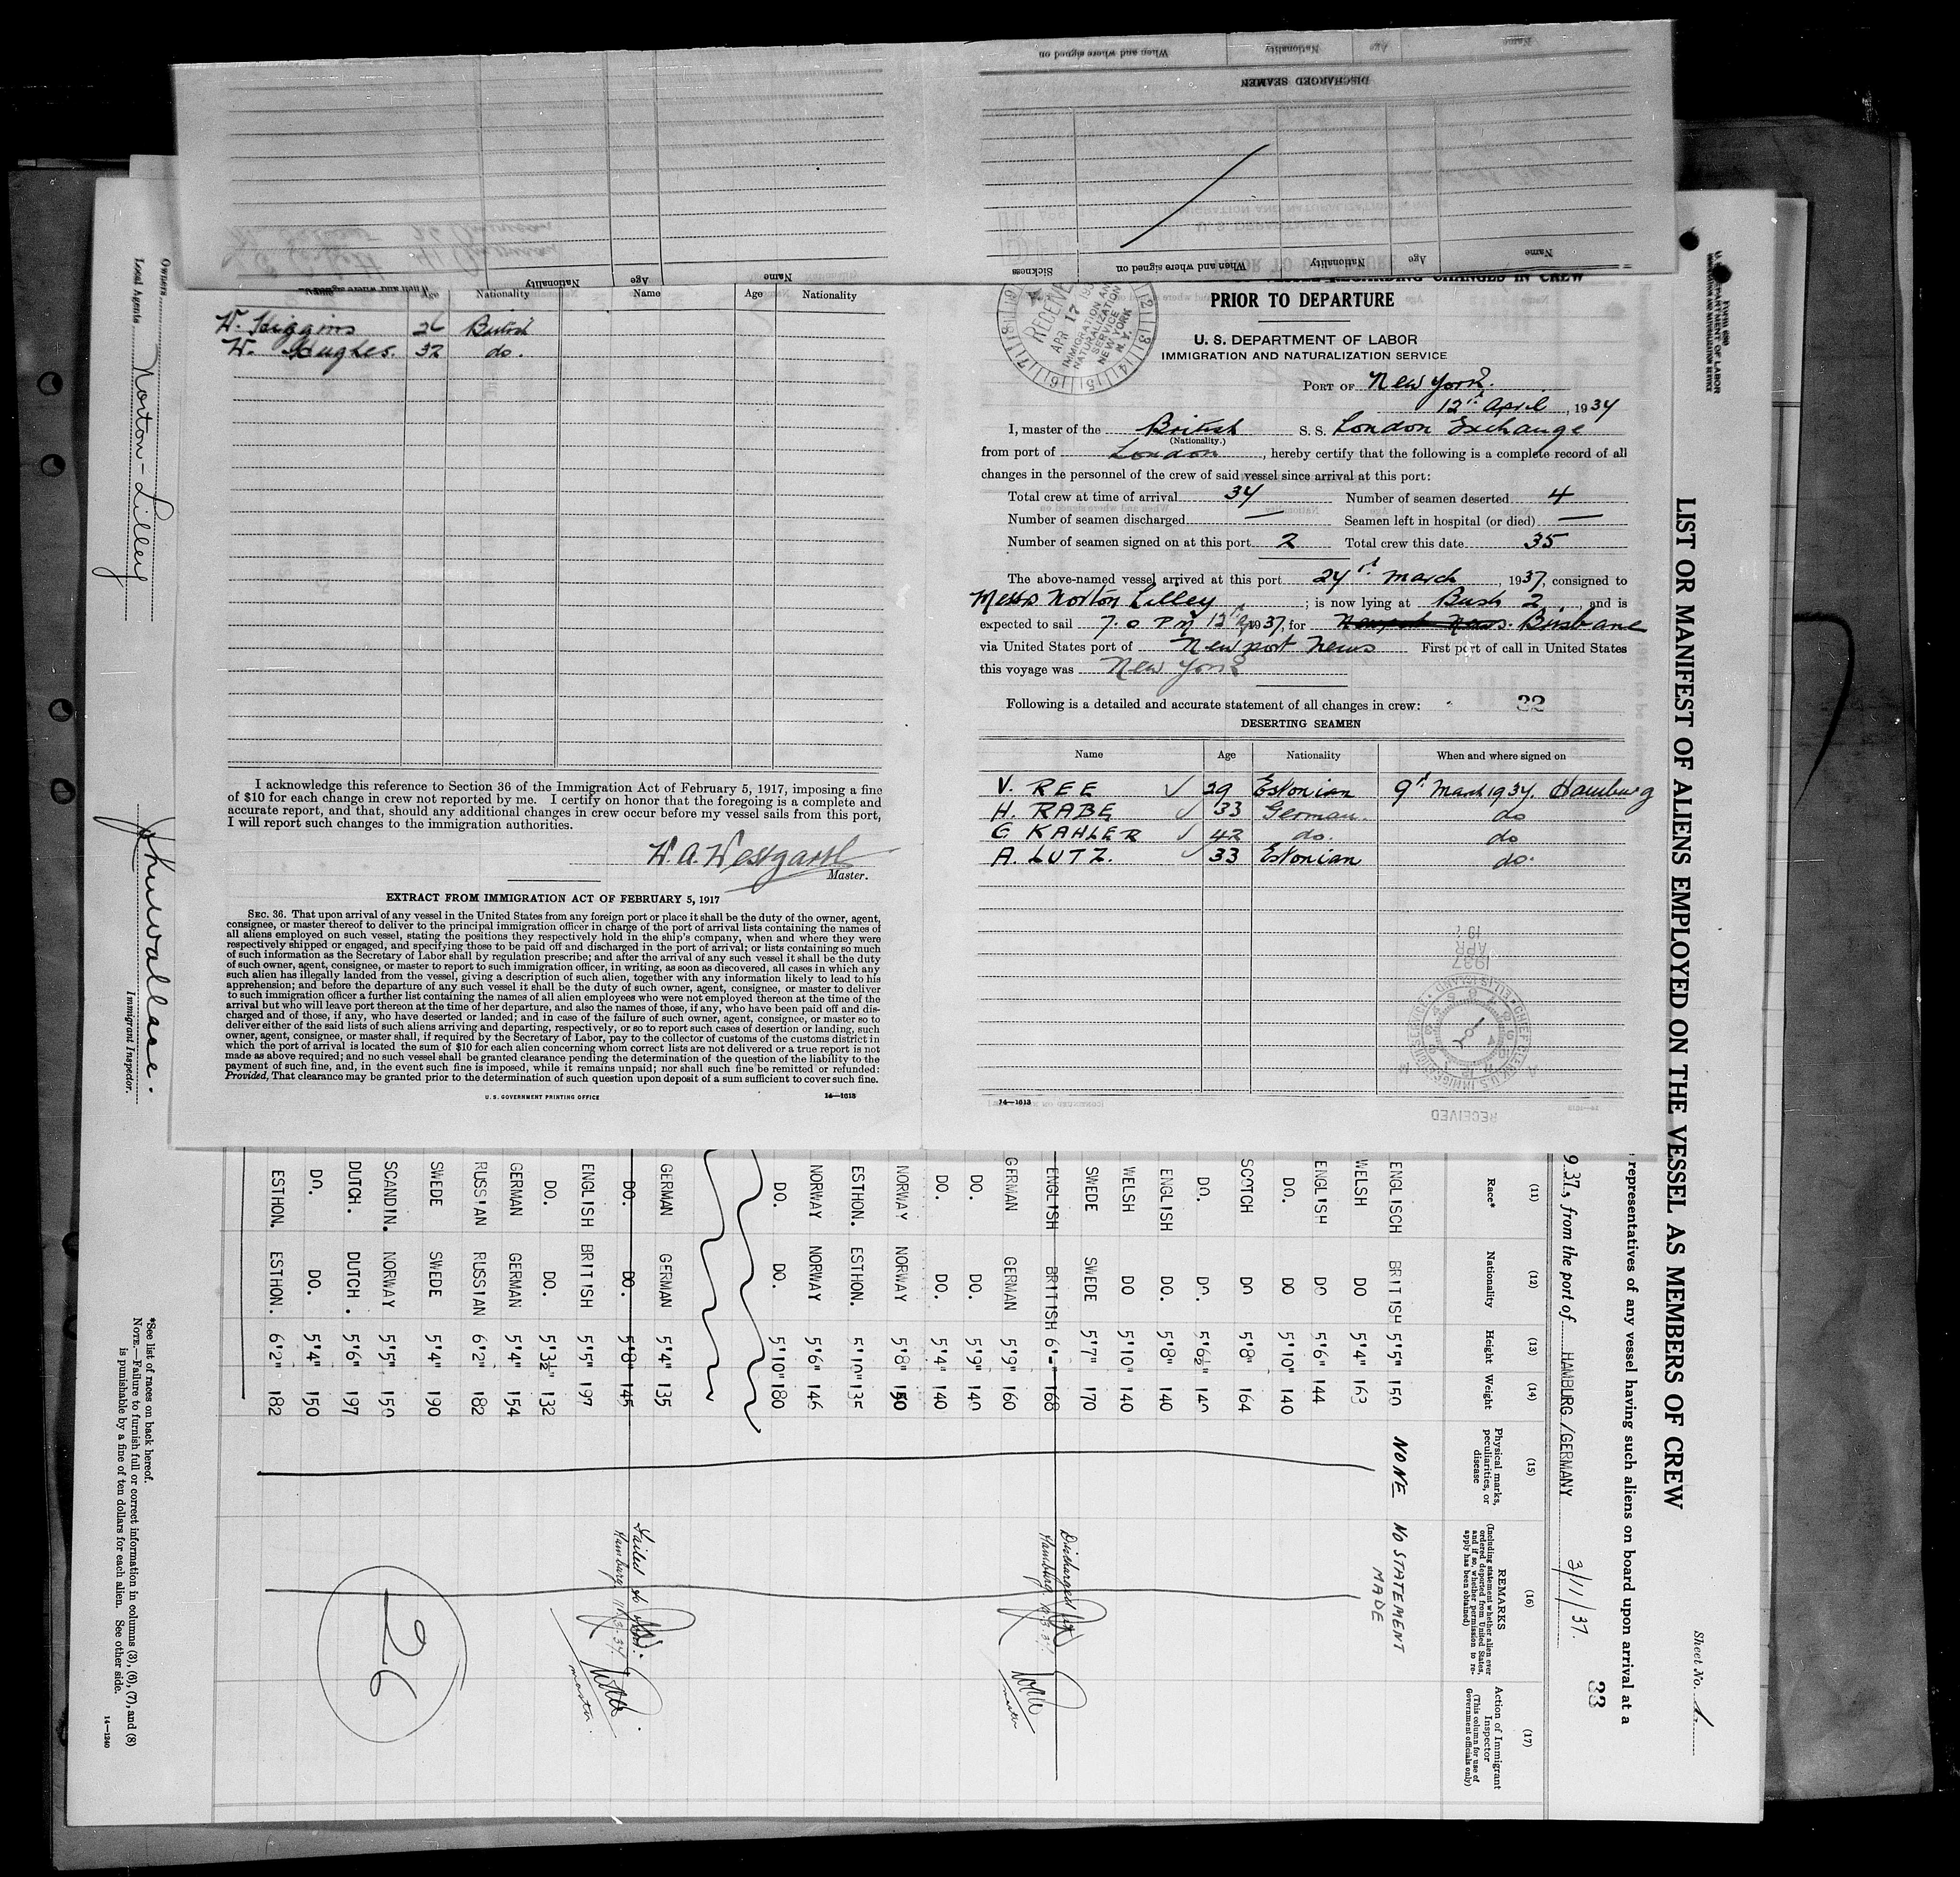 DISCHARGED SEAMEN
Name Age Nationality When and where signed on
Name Age Nationality When and where signed on Sickness
Age Nationality Name Age Nationality
W. Higgins 26 British
W. Hughes. 32 do.
I acknowledge this reference to Section 36 of the Immigration Act of February 5, 1917, imposing a fine
of $10 for each change in crew not reported by me. I certify on honor that the foregoing is a complete and
accurate report, and that, should any additional changes in crew occur before my vessel sails from this port,
I will report such changes to the immigration authorities.
W. A. Westgarth
Master.
EXTRACT FROM IMMIGRATION ACT OF FEBRUARY 5, 1917
SEC. 36. That upon arrival of any vessel in the United States from any foreign port or place it shall be the duty of the owner, agent,
consignee, or master thereof to deliver to the principal immigration officer in charge of the port of arrival lists containing the names of
all aliens employed on such vessel, stating the positions they respectively hold in the ship's company, when and where they were
respectively shipped or engaged, and specifying those to be paid off and discharged in the port of arrival; or lists containing so much
of such information as the Secretary of Labor shall by regulation prescribe; and after the arrival of any such vessel it shall be the duty
of such owner, agent, consignee, or master to report to such immigration officer, in writing, as soon as discovered, all cases in which any
such alien has illegally landed from the vessel, giving a description of such alien, together with any information likely to lead to his
apprehension; and before the departure of any such vessel it shall be the duty of such owner, agent, consignee, or master to deliver
to such immigration officer a further list containing the names of all alien employees who were not employed thereon at the time of the
arrival but who will leave port thereon at the time of her departure, and also the names of those, if any, who have been paid off and dis-
charged and of those, if any, who have deserted or landed; and in case of the failure of such owner, agent, consignee, or master so to
deliver either of the said lists of such aliens arriving and departing, respectively, or so to report such cases of desertion or landing, such
owner, agent, consignee, or master shall, if required by the Secretary of Labor, pay to the collector of customs of the customs district in
which the port of arrival is located the sum of $10 for each alien concerning whom correct lists are not delivered or a true report is not
made as above required; and no such vessel shall be granted clearance pending the determination of the question of the liability to the
payment of such fine, and, in the event such fine is imposed, while it remains unpaid; nor shall such fine be remitted or refunded:
Provided, That clearance may be granted prior to the determination of such question upon deposit of a sum sufficient to cover such fine.
U. S. GOVERNMENT PRINTING OFFICE 14—1613
REGARDING CHANGES IN CREW
PRIOR TO DEPARTURE
U. S. DEPARTMENT OF LABOR
IMMIGRATION AND NATURALIZATION SERVICE
RECEIVED
APR 17
IMMIGRATION AND
NATURALIZATION
SERVICE
NEW YORK
N. Y.
PORT OF New York.
12th April, 1937
I, master of the British S. S. London Exchange
(Nationality.)
from port of London, hereby certify that the following is a complete record of all
changes in the personnel of the crew of said vessel since arrival at this port:
Total crew at time of arrival 34 Number of seamen deserted 4
Number of seamen discharged — Seamen left in hospital (or died) —
Number of seamen signed on at this port 2 Total crew this date 35
The above-named vessel arrived at this port 24th March, 1937, consigned to
Messrs Norton Lilley; is now lying at Bush 2, and is
expected to sail 7.0 PM 12th 1937, for Newport News. Brisbane
via United States port of Newport News First port of call in United States
this voyage was New York
Following is a detailed and accurate statement of all changes in crew: 32
DESERTING SEAMEN
Name Age Nationality When and where signed on
V. REE ✓ 29 Estonian 9th March 1937. Hamburg
H. RABE ✓ 33 German. do
G KAHLER ✓ 42 do. do
A. LUTZ. ✓ 33 Estonian do.
14—1613
RECEIVED
1937
APR
Owners
Local Agents Norton-Lilley
Immigrant Inspector.
LIST OR MANIFEST OF ALIENS EMPLOYED ON THE VESSEL AS MEMBERS OF CREW
Sheet No. 1.
representatives of any vessel having such aliens on board upon arrival at a
37, from the port of HAMBURG/GERMANY 3/11/37. 33
(11) (12) (13) (14) (15) (16) (17)
Race* Nationality Height Weight Physical marks, peculiarities, or disease
REMARKS
(Including statement whether alien ever ordered deported from United States, and if so, whether permission to reapply has been obtained)
Action of Immigrant Inspector
(This column for use of Government officials only)
ENGLISCH BRITISH 5'5" 150 NONE NO STATEMENT MADE
WELSH DO 5'4" 163
ENGLISH DO 5'6" 144
DO. DO 5'10" 140
SCOTCH DO 5'8" 164
DO. DO. 5'6½" 140
ENGLISH DO. 5'8" 140
WELSH DO 5'10" 140
SWEDE SWEDE 5'7" 170
ENGLISH BRITISH 6'-" 168 Discharged Hamburg
GERMAN GERMAN 5'9" 160
DO. DO. 5'9" 140
DO. DO. 5'4" 140
NORWAY NORWAY 5'8" 150
ESTHON. ESTHON. 5'10" 135
NORWAY NORWAY 5'6" 146
DO. DO. 5'10" 180
GERMAN GERMAN 5'4" 135
DO. DO. 5'8" 145 Failed to Hamburg
ENGLISH BRITISH 5'5" 197 master.
DO. DO. 5'3½" 132
GERMAN GERMAN 5'4" 154
RUSSIAN RUSSIAN 6'2" 182
SWEDE SWEDE 5'4" 190
SCANDIN. NORWAY 5'5" 150
DUTCH. DUTCH. 5'6" 197
DO. DO. 5'4" 150
ESTHON. ESTHON. 6'2" 182
26
*See list of races on back hereof.
NOTE.—Failure to furnish full or correct information in columns (3), (6), (7), and (8)
is punishable by a fine of ten dollars for each alien. See other side.
14—1240